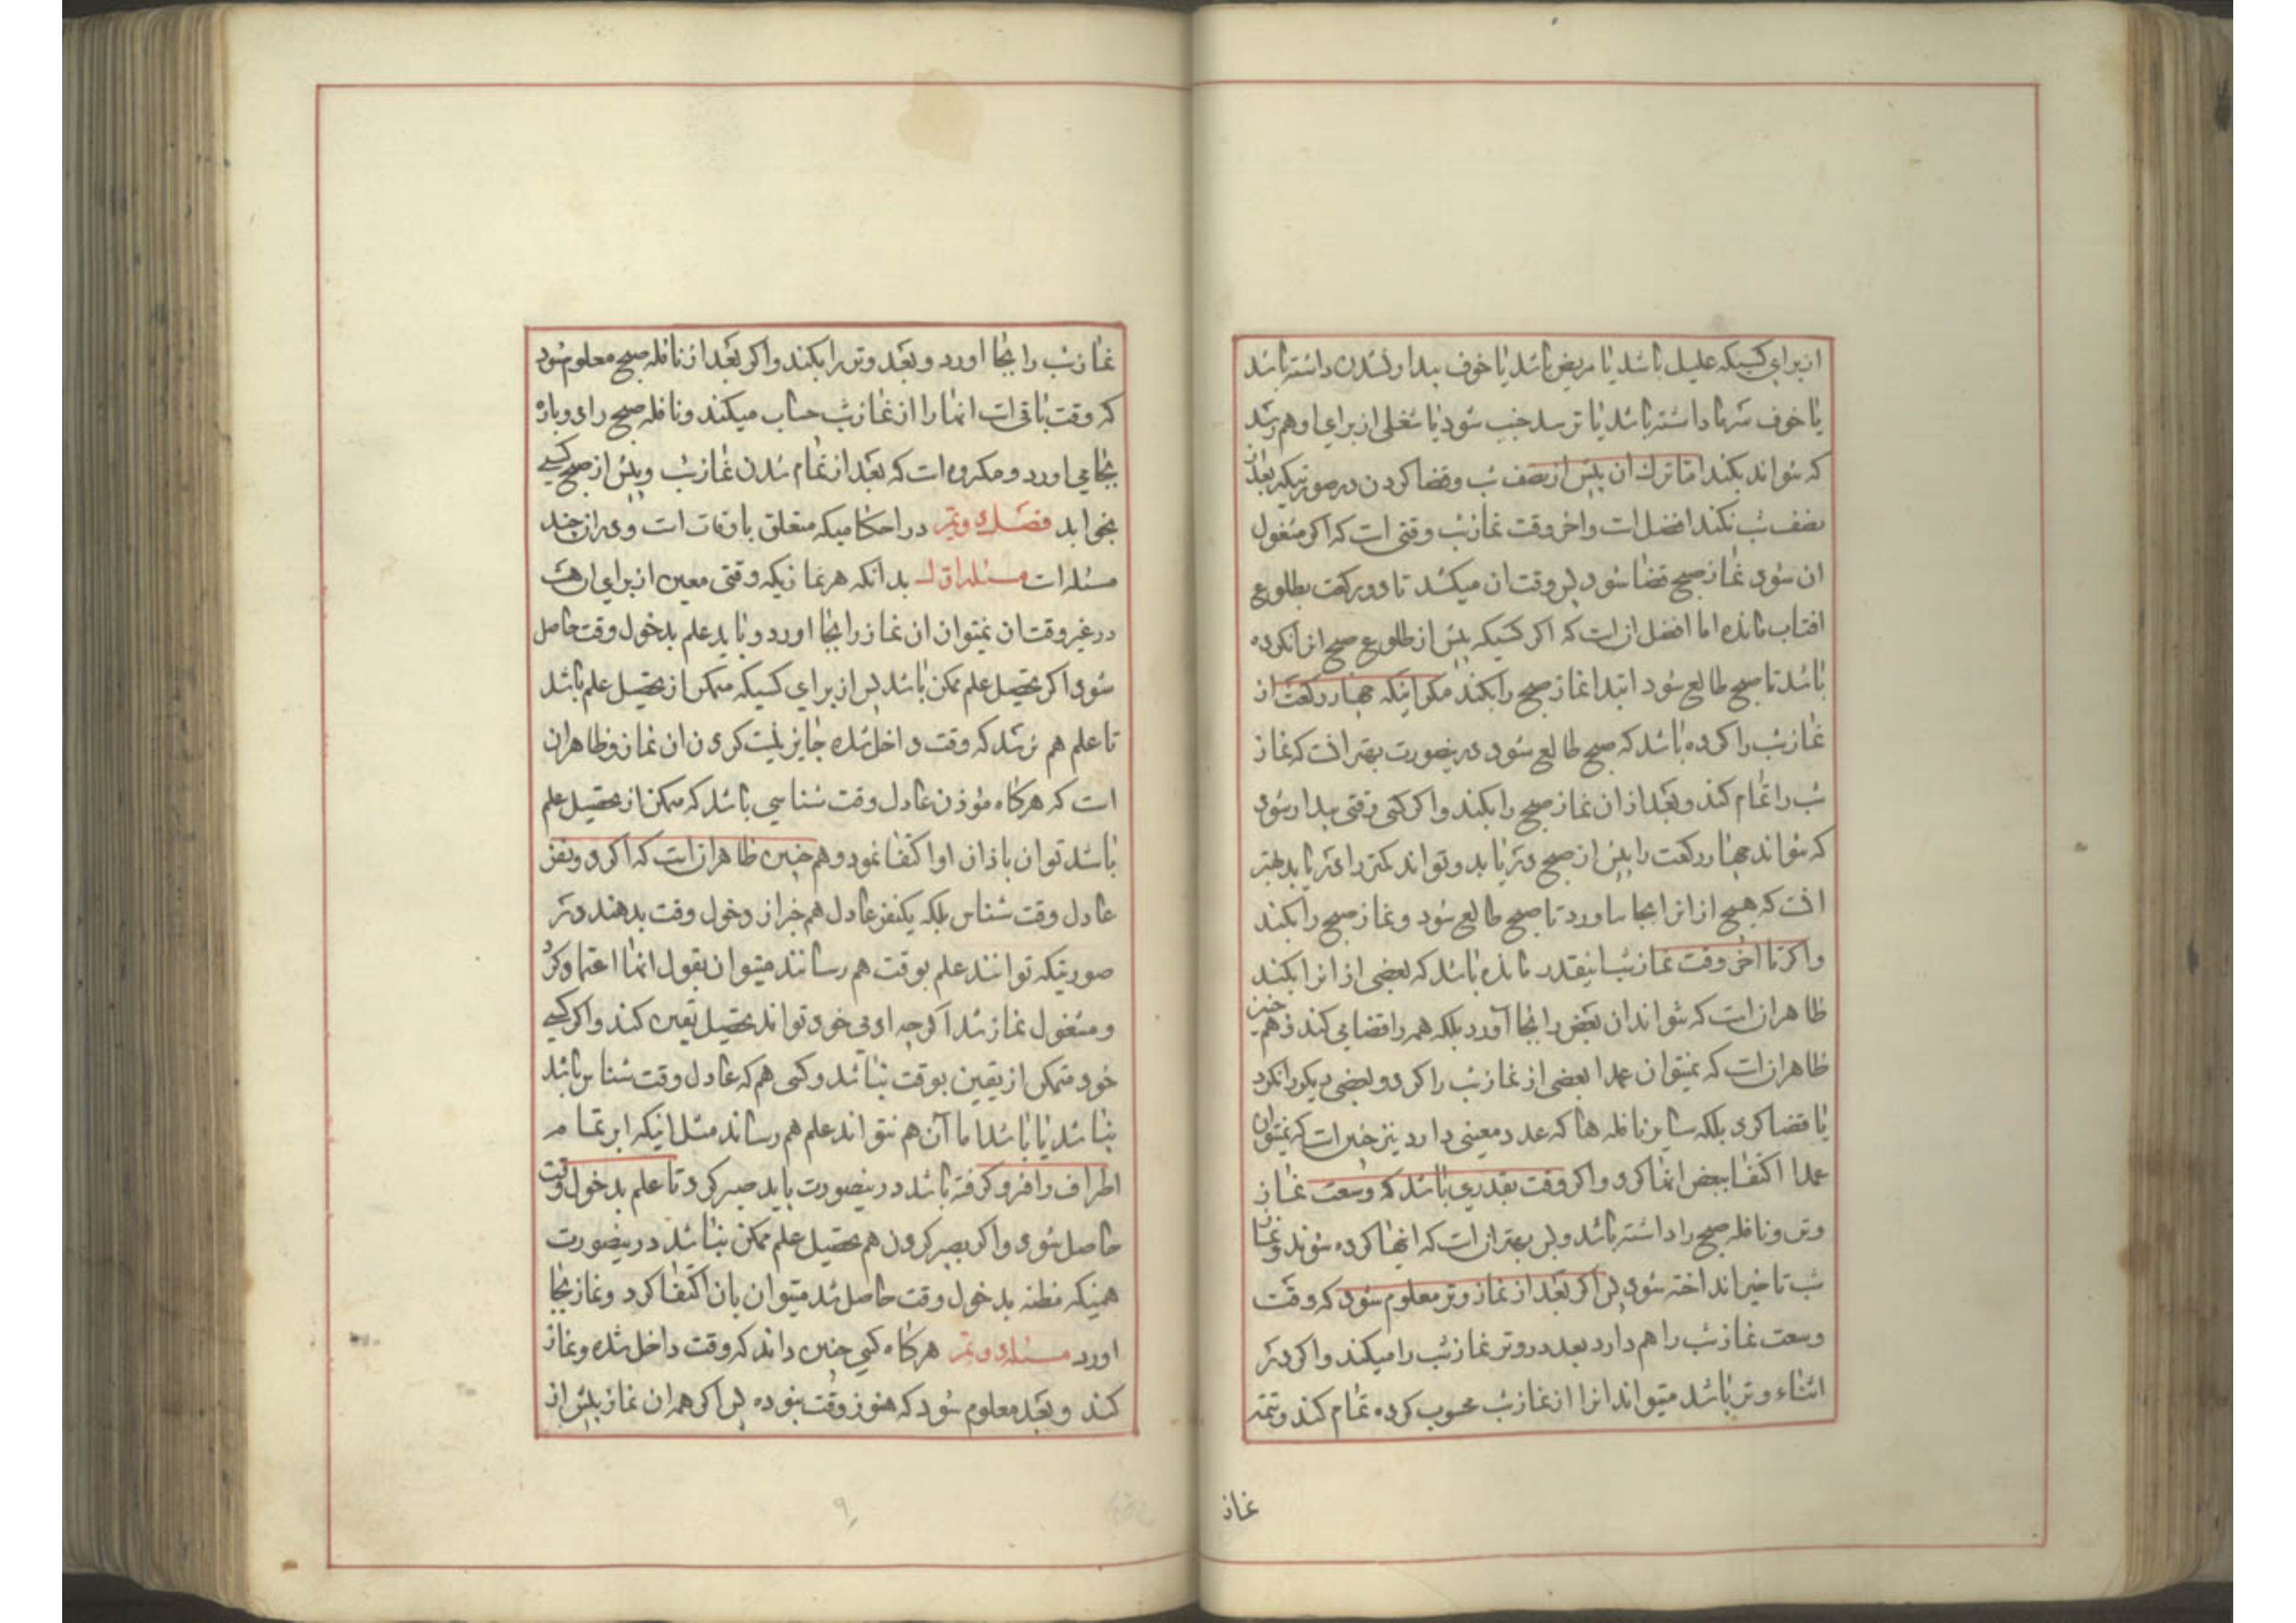 از برای کسیکه علیل باشد یا مریض باشد یا خوف بیدار نشدن داشته باشد
یا خوف سرما داشته باشد یا ترسد جنب شود یا شغلی از برای او هم رسد
که نتواند بکند اما ترک آن پیش از نصف شب و قضا کردن در صورتیکه بعد از
نصف شب نکند افضل است و اخر وقت نماز شب وقتی است که اگر مشغول
ان شود نماز صبح قضا شود پس وقت ان میکشد تا دو رکعت بطلوع
افتاب مانده اما افضل ان است که اگر کسیکه پیش از طلوع صبح انرا نکرده
باشد تا صبح طالع شود ابتدا نماز صبح را بکند مگر اینکه چهار رکعت از
نماز شب را کرده باشد که صبح طالع شود درینصورت بهتر انست که نماز
شب را تمام کند و بعد از ان نماز صبح را بکند و اگر کسی وقتی بیدار شود
که نتواند چهار رکعت را پیش از صبح دریابد و تواند کمتر را دریابد بهتر
انست که هیچ از انرا بجا نیاورد تا صبح طالع شود و نماز صبح را بکند
و اگر تا اخر وقت نماز شب اینقدر مانده باشد که بعضی از انرا بکند
ظاهر ان است که نتواند ان بعض را بجا آورد بلکه همه را قضا می کند و هم چنین
ظاهر ان است که نمیتوان عمدا بعضی از نماز شب را کرد و بعضی دیگر را نکرد
یا قضا کرد بلکه سایر نافله ها که عدد معینی دارد نیز چنین است که نمیتوان
عمدا اکتفا ببعض انها کرد و اگر وقت بقدری باشد که وسعت نماز
وتر و نافله صبح را داشته باشد و پس بهتر ان است که انها کرده شوند و نماز
شب تاخیر انداخته شود پس اگر بعد از نماز وتر معلوم شود که وقت
وسعت نماز شب را هم دارد بعد در وتر نماز شب را میکند و اگر در
اثناء وتر باشد میتواند انرا از نماز شب محسوب کرده تمام کند و تتمه
نماز
نماز شب را بجا اورد و بعد وتر را بکند و اگر بعد از نافله صبح معلوم شود
که وقت باقی است انها را از نماز شب حساب میکند و نافله صبح را دوباره
بجا می اورد و مکروه است که بعد از تمام شدن نماز شب و پیش از صبح کسی
بخوابد فصل دویم در احکامیکه متعلق باوقات است و در ان چند
مسئله است مسئله اول بدانکه هر نمازیکه وقتی معین از برای ان هست
در غیر وقت ان نمیتوان ان نماز را بجا اورد و باید علم بدخول وقت حاصل
شود اگر تحصیل علم ممکن باشد پس از برای کسیکه متمکن از تحصیل علم باشد
تا علم هم نرسد که وقت داخل شده جایز نیست کردن ان نماز و ظاهر ان
است که هرگاه مؤذن عادل وقت شناسی باشد که متمکن از تحصیل علم
باشد توان باذان او اکتفا نمود و هم چنین ظاهر ان است که اگر دو نفر
عادل وقت شناس بلکه یکنفر عادل هم خبر از دخول وقت بدهند در
صورتیکه توانند علم بوقت هم رسانند میتوان بقول انها اعتماد کرد
و مشغول نماز شد اگر چه ادمی خود تواند تحصیل یقین کند و اگر کسی
خود متمکن از یقین بوقت نباشد و کسی هم که عادل وقت شناس باشد
نباشد یا باشد اما آن هم نتواند علم هم رساند مثل اینکه ابر تمام
اطراف را فرو گرفته باشد درینصورت باید صبر کرد تا علم بدخول وقت
حاصل شود و اگر بصبر کردن هم تحصیل علم ممکن نباشد درینصورت
همینکه مظنه بدخول وقت حاصل شد میتوان بان اکتفا کرد و نماز بجا
اورد مسئله دویم هرگاه کسی چنین داند که وقت داخل شده و نماز
کند و بعد معلوم شود که هنوز وقت نبوده پس اگر همه ان نماز پیش از